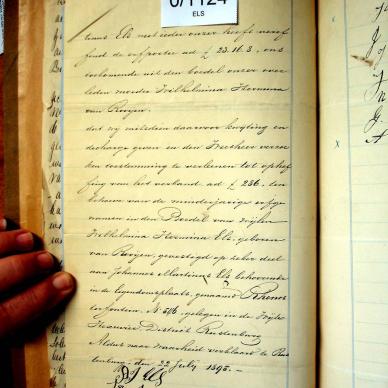 6/1124
ELS
tiaans Els met ieder onzer heeft
fend de erfportie ad £ 23.16.3, ons
toekomende uit den boedel onzer over
leden moeder Wilhelmina Hermina
van Rooijen.
dat wij mitsdien daarvoor kwijting en
decharge geven en den
den toestemming te verleenen tot ophef
fing van het verband ad £ 236, ten
behoeve van de minderjarige erfge
namen in den Boedel van wijlen
Wilhelmina Hermina Els, geboren
van Rooijen, gevestigd op zeker deel
aan Johannes Martinus Els behoorende
in de eigendomsplaats, genaamd
No 506 gelegen in de Wijk
District Rustenburg
Aldus naar waarheid verklaard te Rus
tenburg, den 22 July 1895.